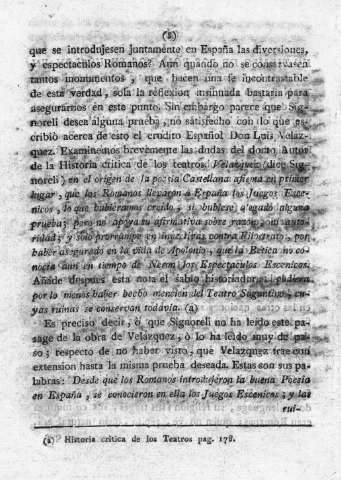 (2)
que se introdujesen juntamente en España las diversiones,
y espectaculos Romanos? Aun quando no se conservasen
tantos monumentos, que hacen una fe incontrastable
de esta verdad, sola la reflexion insinuada bastaria para
asegurarnos en este punto. Sin embargo parece que Sig-
noreli desea alguna prueba, no satisfecho con lo que es-
cribió acerca de esto el erudito Español Don Luis Velaz-
quez. Examinemos brevemente las dudas del docto Autor
de la Historia critica de los teatros. Velazquez (dice Sig-
noreli) en el origen de la poesia Castellana afirma en primer
lugar, que los Romanos llevaron á España los Juegos Esce-
nicos, lo que hubieramos creido, si hubiese alegado alguna
prueba; pero no apoya su afirmativa sobre razon, ni auto-
ridad; y solo prorrumpe en invectivas contra Filostrato, por
haber asegurado en la vida de Apolonio, que la Betica no co-
nocia aun en tiempo de Neron los Espectaculos Escenicos.
Añade despues esta nota el sabio historiador: pudiera
por lo menos haber hecho mencion del Teatro Saguntino, cu-
yas ruinas se conservan todavia. (a)
Es preciso decir, ò que Signoreli no ha leido este pa-
sage de la obra de Velazquez, ò lo ha leido muy de pa-
so; respecto de no haber visto, que Velazquez trae con
extension hasta la misma prueba deseada. Estas son sus pa-
labras: Desde que los Romanos introdujeron la buena Poesia
en España, se conocieron en ella los Juegos Escenicos; y las
rui-
(a) Historia critica de los Teatros pag. 178.